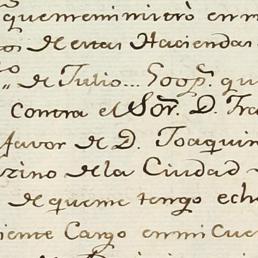 quememinitrò en m
de estas Haciendas
de Julio... 600ps. qu
Contra el Sor. D. Fra
favor de D. Joaquin
zino de la Ciudad
de que me tengo ech
iente Cargo en mi Cue